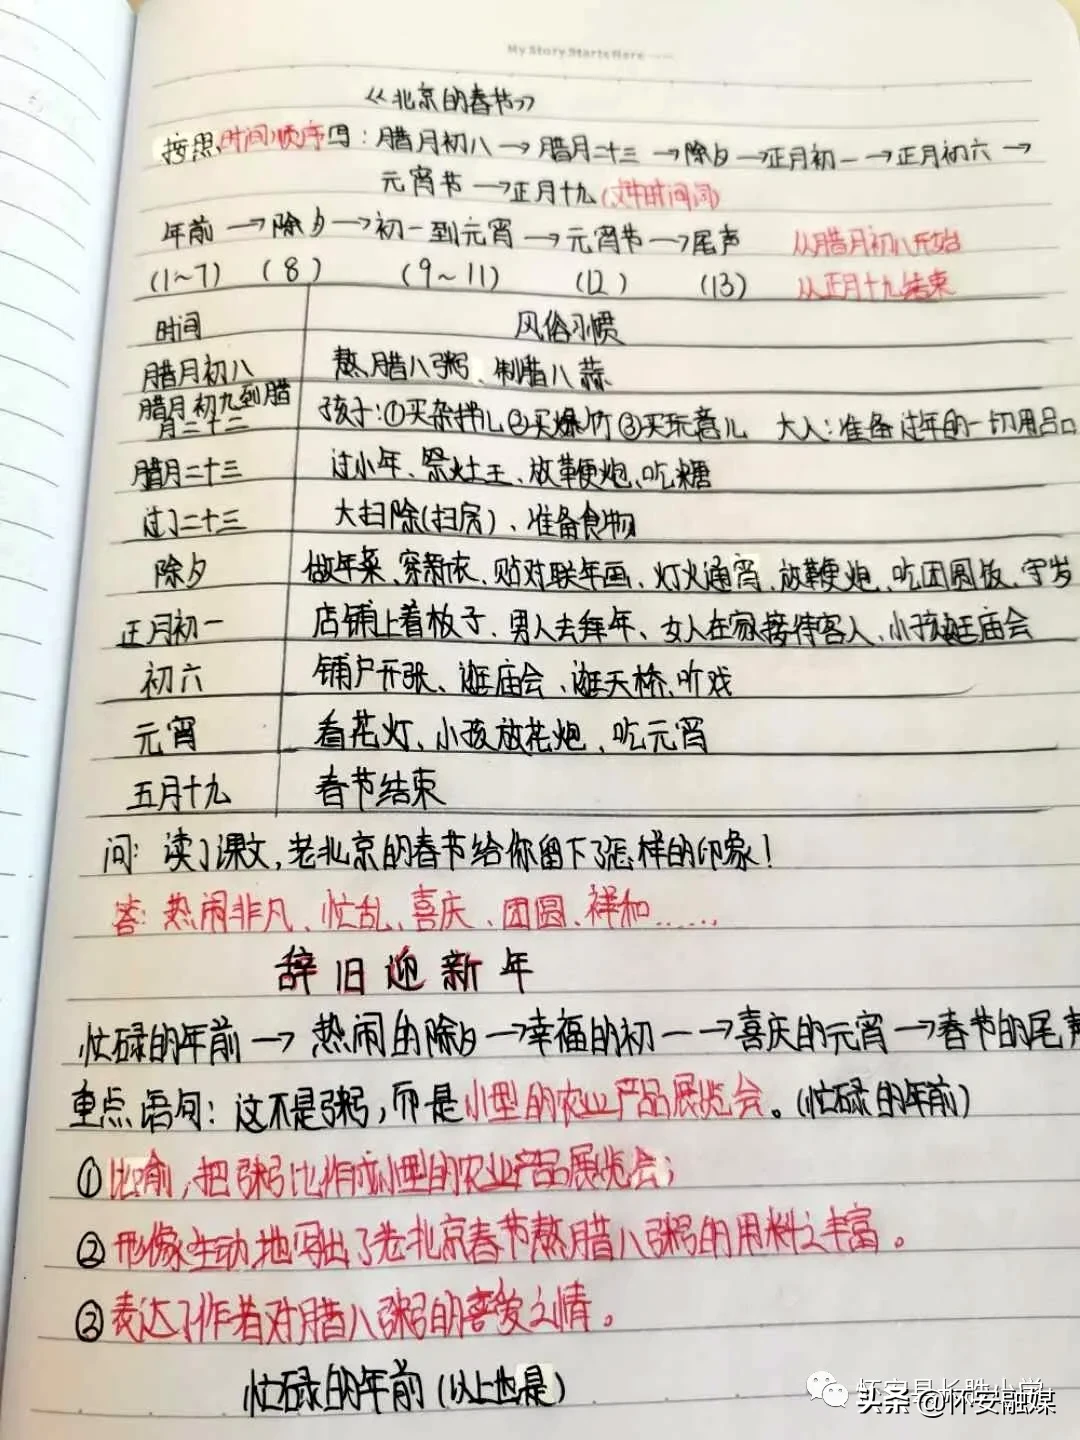 My Story Starts Here
《北京的春节》
按照时间顺序写：腊月初八→腊月二十三→除夕→正月初一→正月初六→
元宵节→正月十九（文中时间词）
年前→除夕→初一到元宵→元宵节→尾声 从腊月初八开始
(1~7) (8) (9~11) (12) (13) 从正月十九结束
时间 风俗习惯
腊月初八 熬腊八粥、制腊八蒜
腊月初九到腊月二十二 孩子：①买杂拌儿②买爆竹③买玩意儿 大人：准备过年的一切用品
腊月二十三 过小年、祭灶王、放鞭炮、吃糖
过了二十三 大扫除(扫房)、准备食物
除夕 做年菜、穿新衣、贴对联年画、灯火通宵、放鞭炮、吃团圆饭、守岁
正月初一 店铺上着板子、男人去拜年、女人在家接待客人、小孩逛庙会
初六 铺户开张、逛庙会、逛天桥、听戏
元宵 看花灯、小孩放花炮、吃元宵
五月十九 春节结束
问：读了课文，老北京的春节给你留下了怎样的印象！
答：热闹非凡、忙乱、喜庆、团圆、祥和……
辞旧迎新年
忙碌的年前→热闹的除夕→幸福的初一→喜庆的元宵→春节的尾声
重点语句：这不是粥，而是小型的农业产品展览会。(忙碌的年前)
①比喻，把粥比作成小型的农业产品展览会；
②形像生动地写出了老北京春节熬腊八粥的用料之丰富。
③表达了作者对腊八粥的喜爱之情。
忙碌的年前(以上也是)
怀安县长胜小学
头条 @怀安融媒